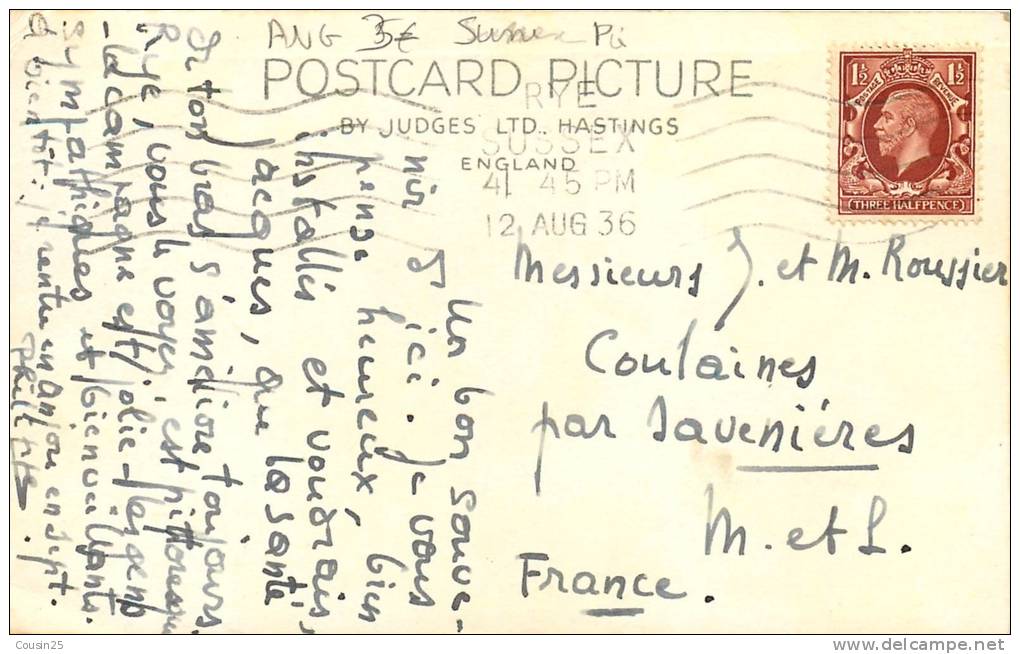 ANG 35€ Sussex Pi
POSTCARD PICTURE
BY JUDGES LTD., HASTINGS
ENGLAND
RYE
SUSSEX
4 45 PM
12 AUG 36
1½ 1½
POSTAGE REVENUE
(THREE HALFPENCE)
Messieurs J. et M. Roussier
Coulaines
par Savenières
M. et L.
France.
Un bon souve-
nir d'ici. Je vous
pense heureux, bien
installés et voudrais,
Jacques, que la santé
et ton bras s'améliore toujours.
Rye, vous le voyez, est pittoresque
- la campagne est jolie - les gens
sympathiques et bienveillants.
A bientôt: je rentre en Anjou en sept.
Cousin25
www.delcampe.net